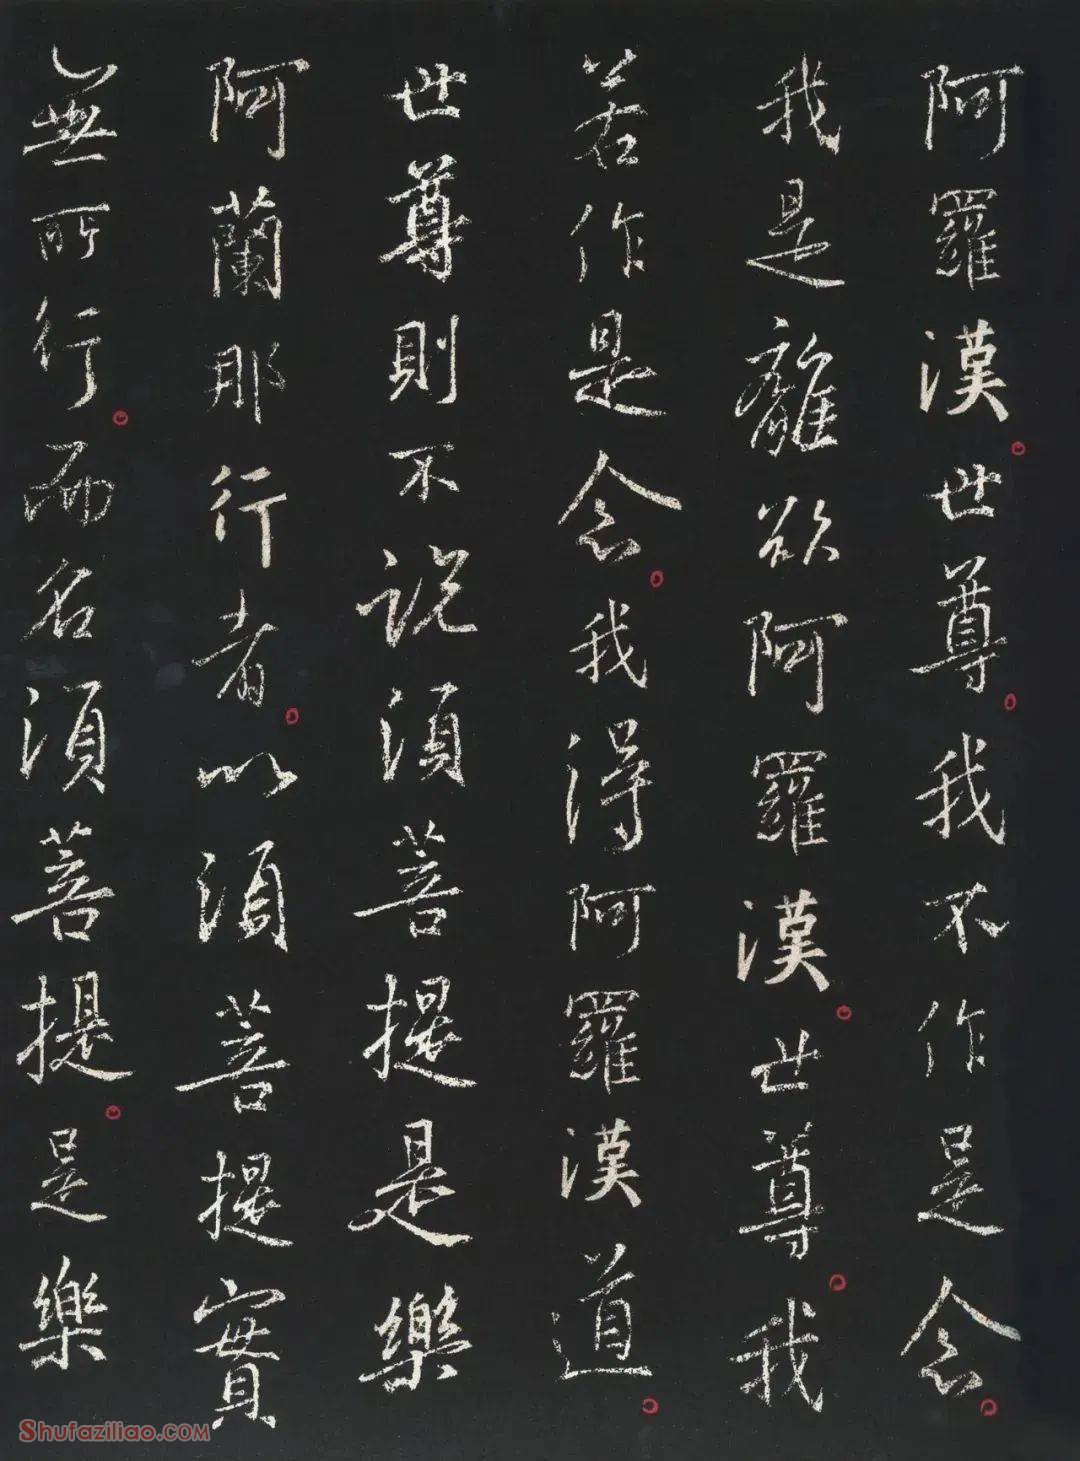 阿羅漢世尊我不作是念
我是離欲阿羅漢世尊我
若作是念我得阿羅漢道
世尊則不說須菩提是樂
阿蘭那行者以須菩提實
無所行而名須菩提是樂
Shufaziliao.COM